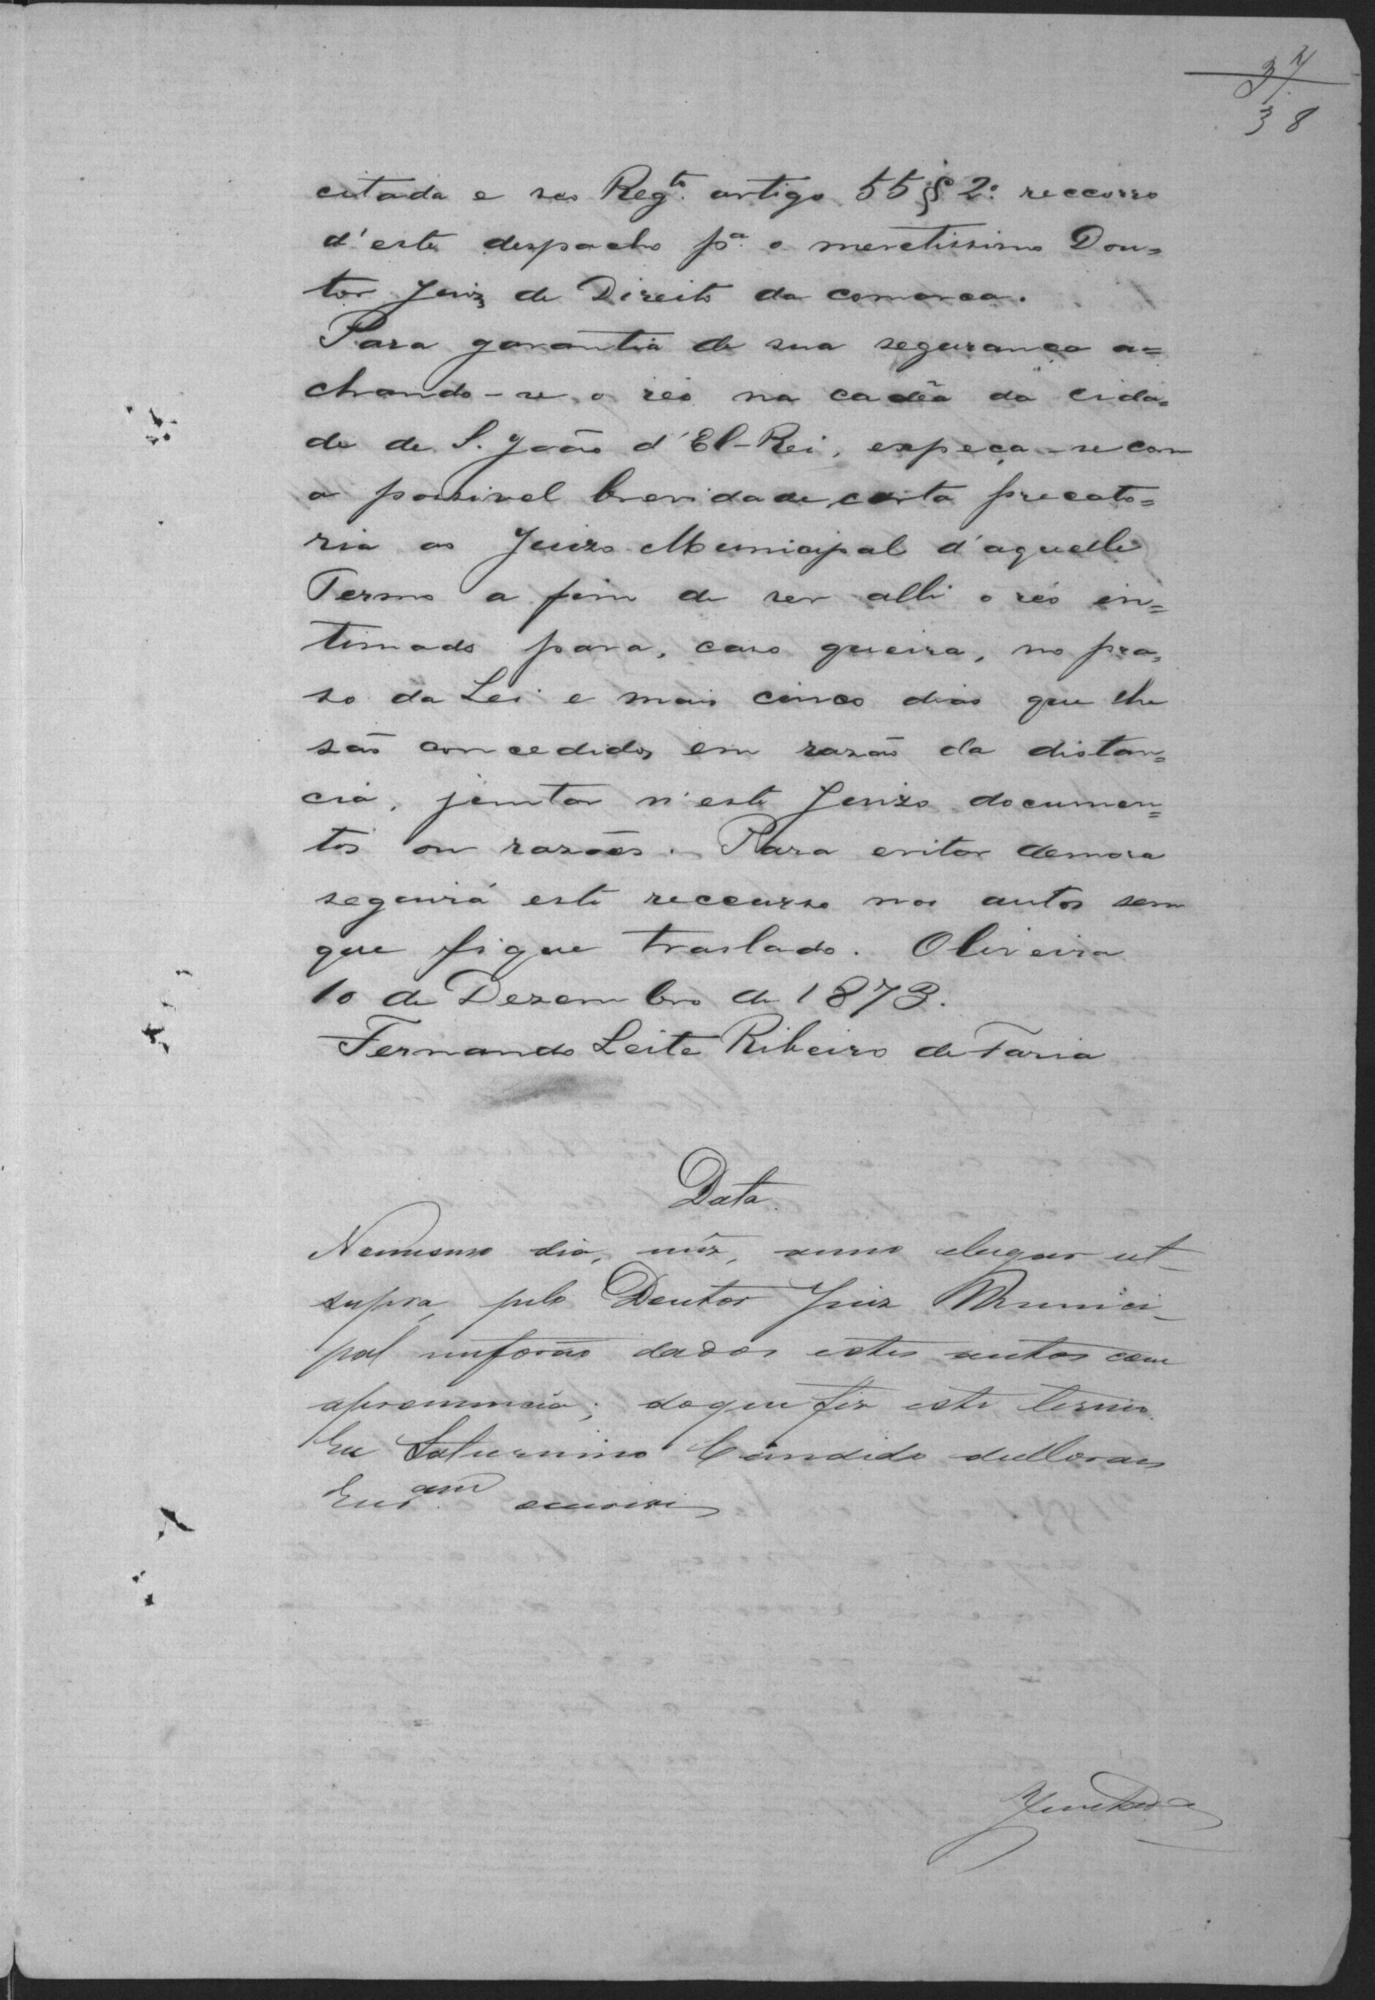 37
38
citada e seo Reg.to artigo 55 § 2.º reccorro
d'este despacho p.ª o meretissimo Dou=
tor Juiz de Direito da comarca.
Para garantia de sua segurança a=
chando-se o réo na cadêa da cida=
de de S. João d'El-Rei, expeça-se com
a possivel brevidade carta precato=
ria ao Juizo Municipal d'aquelle
Termo a fim de ser alli o réo in=
timado para, caso queira, no pra=
so da Lei e mais cinco dias que lhe
são concedidos em razão da distan=
cia, juntar n'este Juizo documen=
tos ou razões. Para evitar demora
seguirá este reccurso nos autos sem
que fique traslado. Oliveira
10 de Dezembro de 1873.
Fernando Leite Ribeiro de Faria
Data.
Nomesmo dia, mês, anno elugar ut-
supra, pelo Doutor Juiz Munici-
pal meforão dados estes autos com
apronuncia; doque fiz este termo.
Eu Saturnino Candido deMoraes
escrevi
Juntada